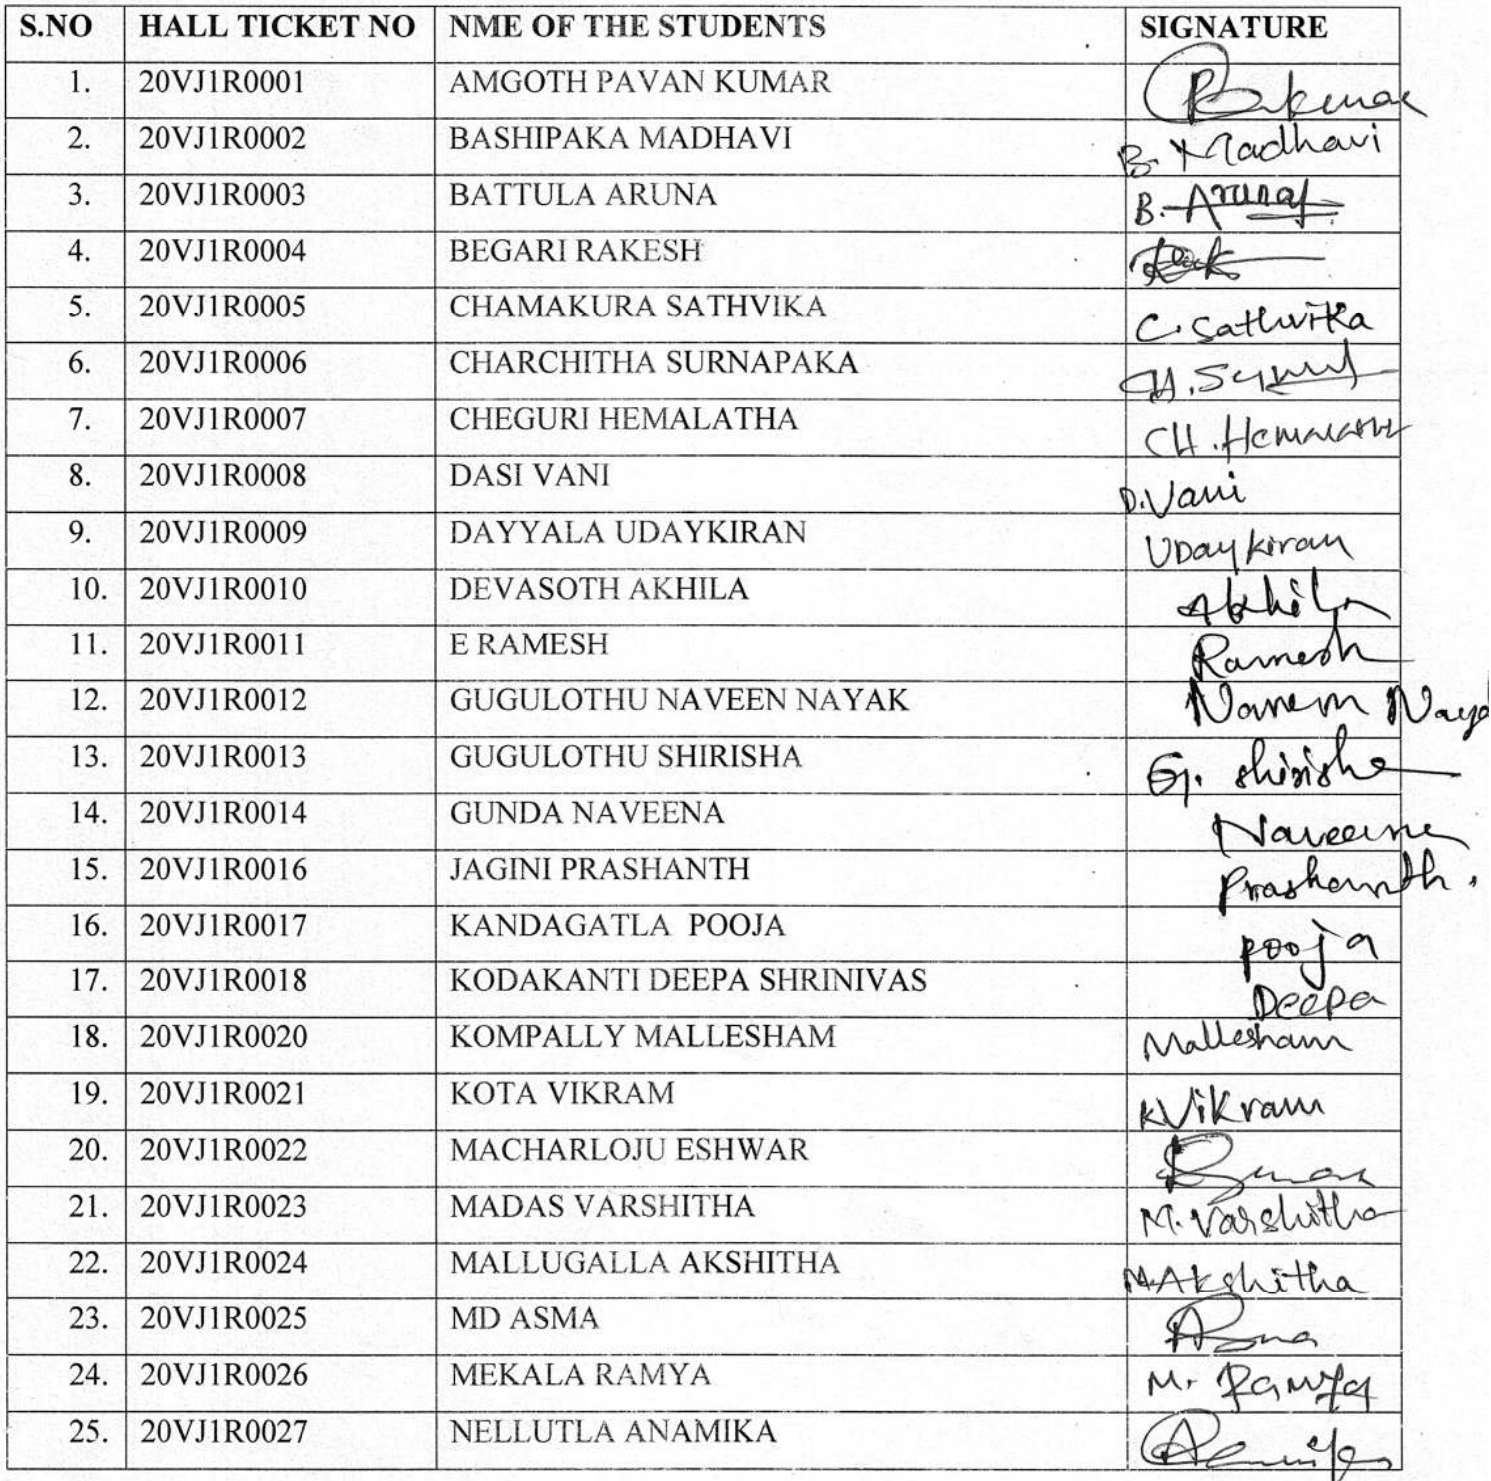 S.NO HALL TICKET NO NME OF THE STUDENTS SIGNATURE
1. 20VJ1R0001 AMGOTH PAVAN KUMAR
2. 20VJ1R0002 BASHIPAKA MADHAVI B. Madhavi
3. 20VJ1R0003 BATTULA ARUNA B. Aruna
4. 20VJ1R0004 BEGARI RAKESH
5. 20VJ1R0005 CHAMAKURA SATHVIKA C. Sathvika
6. 20VJ1R0006 CHARCHITHA SURNAPAKA CH.
7. 20VJ1R0007 CHEGURI HEMALATHA CH. Hemalatha
8. 20VJ1R0008 DASI VANI D. Vani
9. 20VJ1R0009 DAYYALA UDAYKIRAN UDaykiran
10. 20VJ1R0010 DEVASOTH AKHILA Akhila
11. 20VJ1R0011 E RAMESH Ramesh
12. 20VJ1R0012 GUGULOTHU NAVEEN NAYAK Naveen
13. 20VJ1R0013 GUGULOTHU SHIRISHA G. Shirisha
14. 20VJ1R0014 GUNDA NAVEENA Naveena
15. 20VJ1R0016 JAGINI PRASHANTH Prashanth.
16. 20VJ1R0017 KANDAGATLA POOJA pooja
17. 20VJ1R0018 KODAKANTI DEEPA SHRINIVAS Deepa
18. 20VJ1R0020 KOMPALLY MALLESHAM Mallesham
19. 20VJ1R0021 KOTA VIKRAM K Vikram
20. 20VJ1R0022 MACHARLOJU ESHWAR
21. 20VJ1R0023 MADAS VARSHITHA M. Varshitha
22. 20VJ1R0024 MALLUGALLA AKSHITHA M. Akshitha
23. 20VJ1R0025 MD ASMA Asma
24. 20VJ1R0026 MEKALA RAMYA M. Ramya
25. 20VJ1R0027 NELLUTLA ANAMIKA